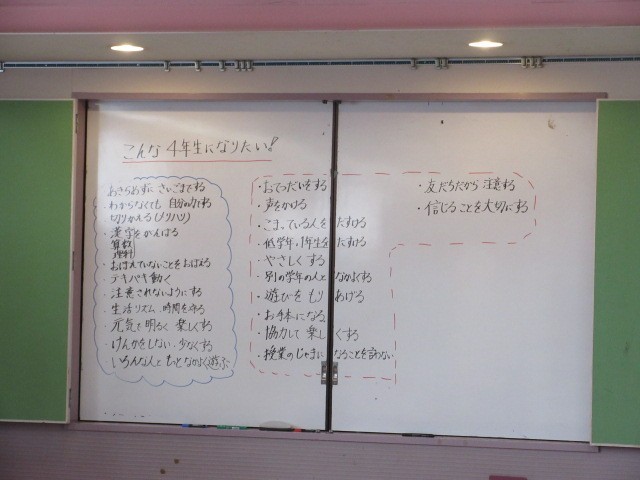 こんな4年生になりたい!
あきらめずに さいごまでする
わからなくても 自分の力でする
切りかえる(メリハリ)
・漢字をがんばる
算数
理科
・おぼえていないことをおぼえる
・テキパキ動く
・注意されないようにする
・生活リズム、時間を守る
・元気で明るく 楽しくする
・けんかをしない、少なくする
・いろんな人ともっとなかよく遊ぶ
・おてつだいをする
・声をかける
・こまっている人をたすける
・低学年、1年生をたすける
・やさしくする
・別の学年の人となかよくする
・遊びをもりあげる
・お手本になる
・協力して楽しくする
・授業のじゃまになることを言わない
・友だちだから注意する
・信じることを大切にする